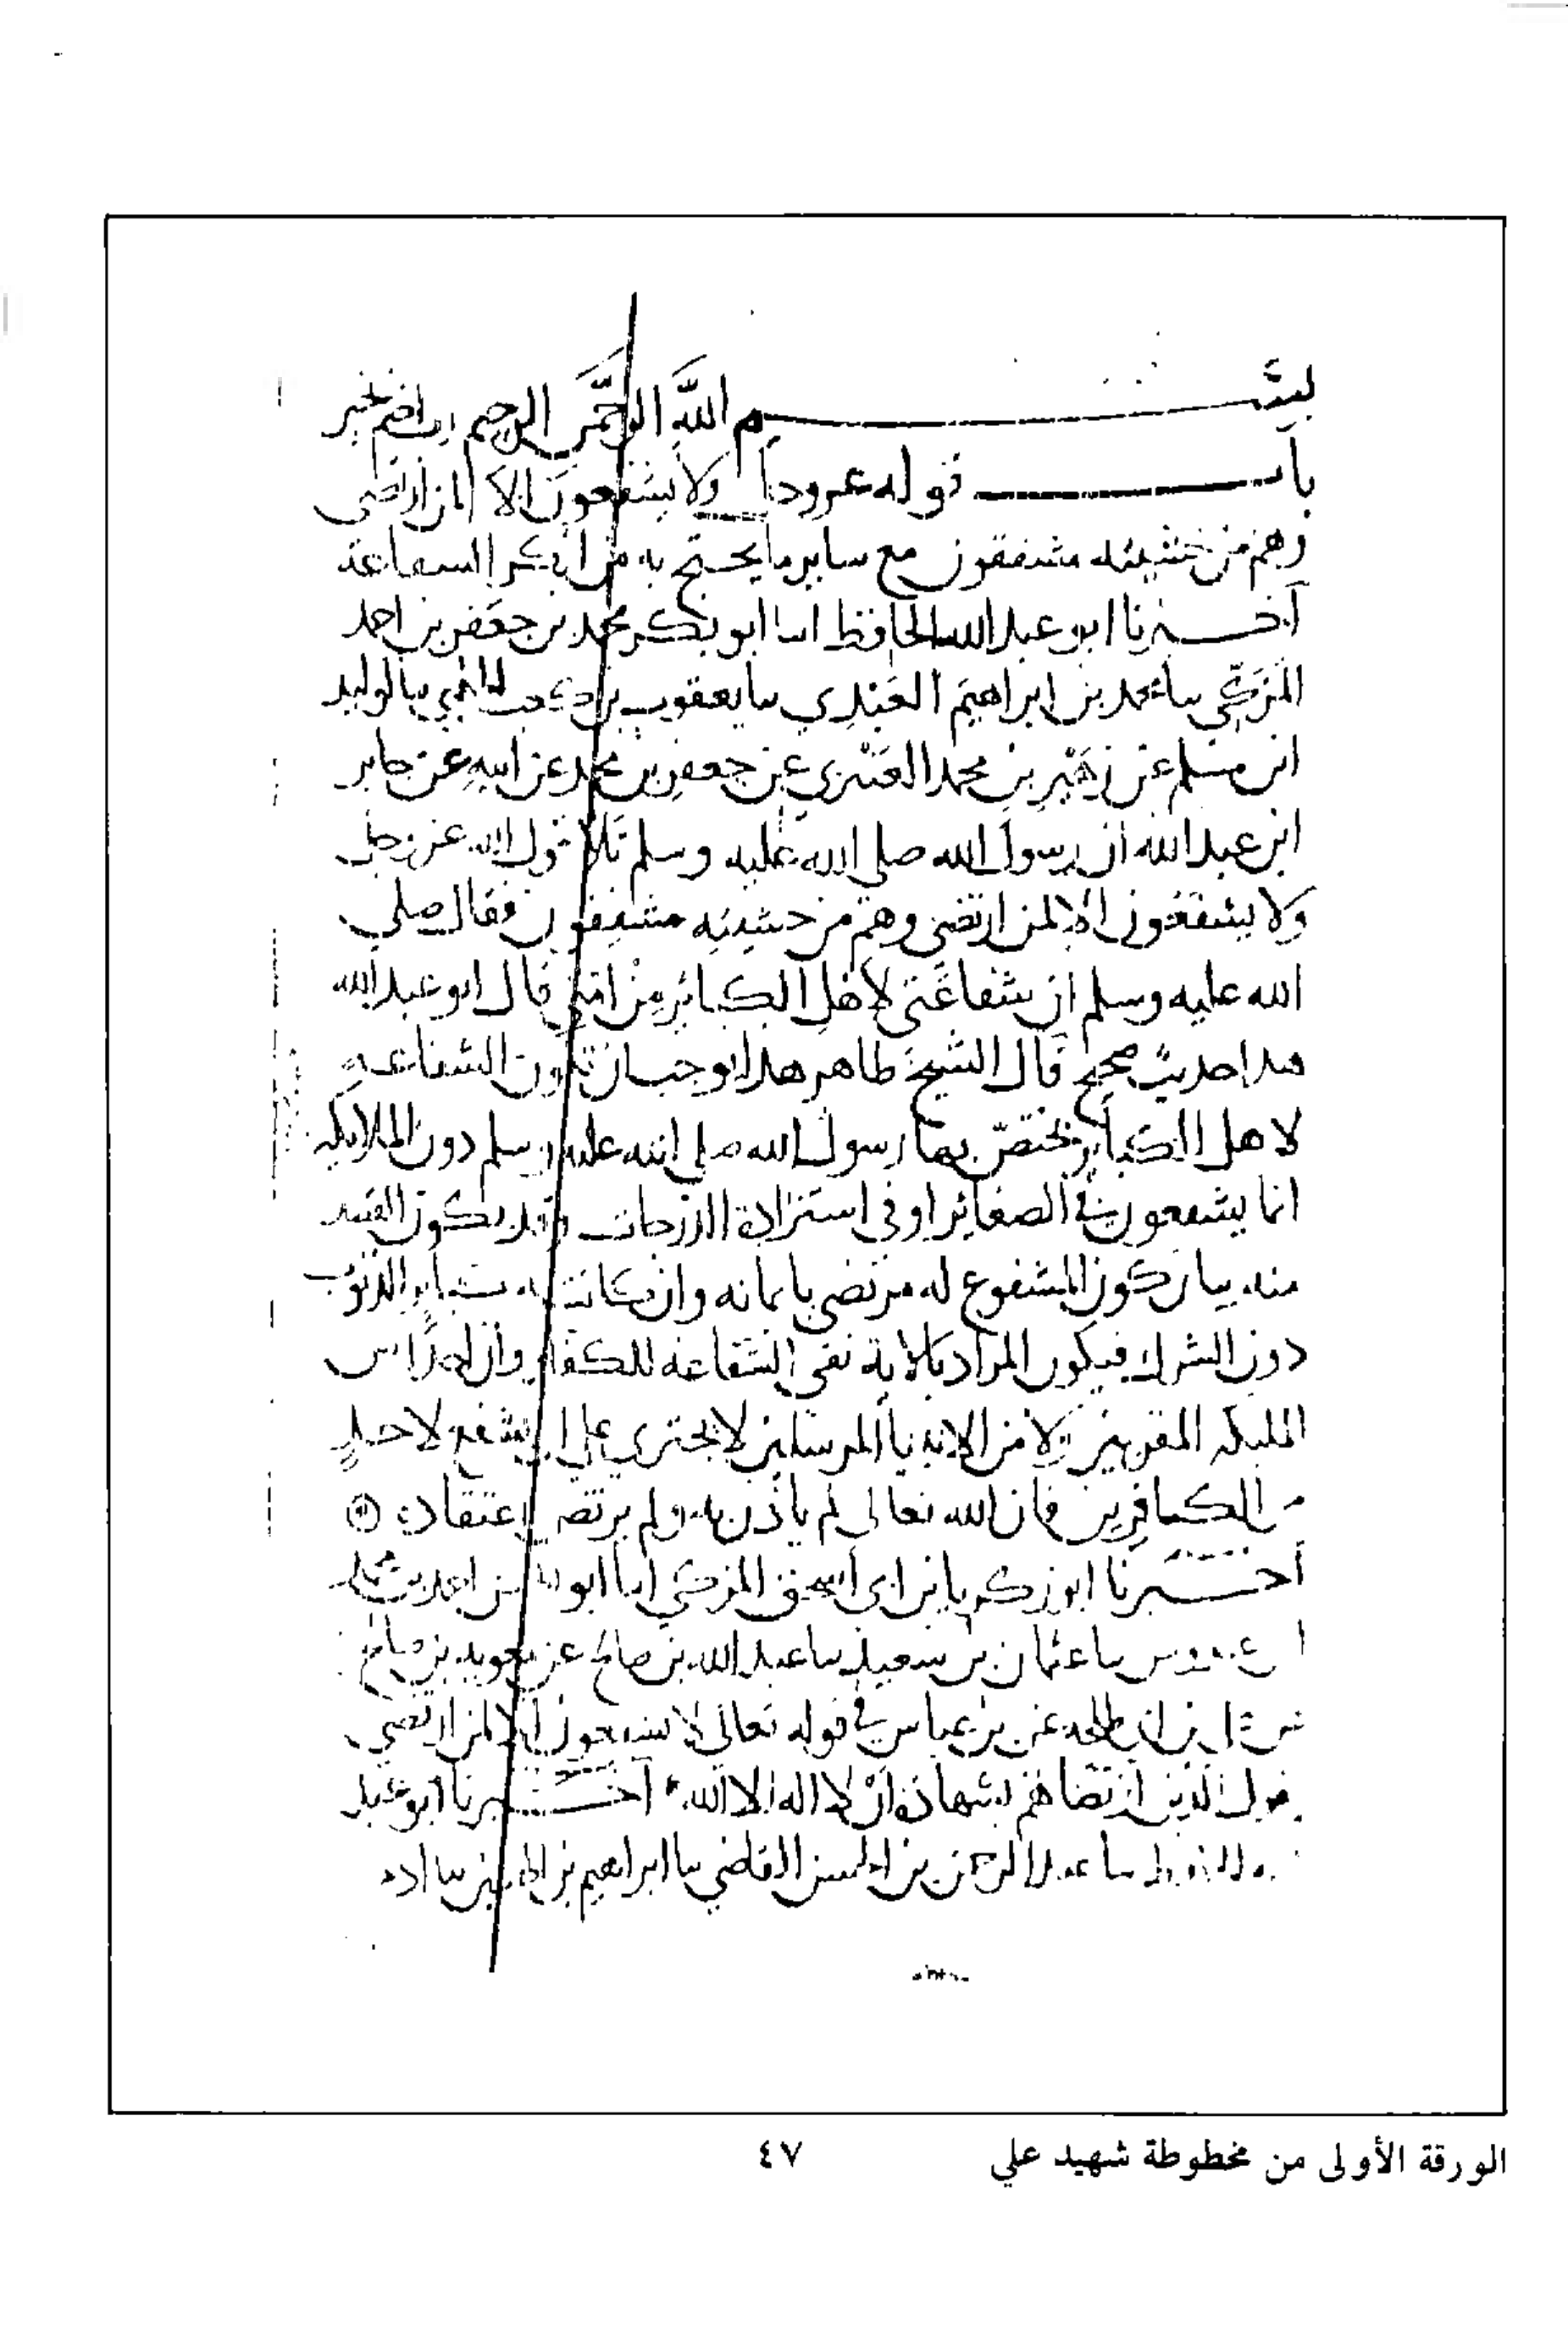 بسم الله الرحمن الرحيم رب اختم بخير
باب قوله عز وجل ولا يشفعون الا لمن ارتضى
وهم من خشيته مشفقون مع ساير ما يحتج به من انكر الشفاعة
أخبرنا ابو عبد الله الحافظ انبا ابو بكر محمد بن جعفر بن احمد
المزكي نبا محمد بن ابراهيم العبدي نبا يعقوب بن كعب الحلبي نبا الوليد
ابن مسلم عن زهير بن محمد العنبري عن جعفر بن محمد عن ابيه عن جابر
ابن عبد الله ان رسول الله صلى الله عليه وسلم تلا قول الله عز وجل
ولا يشفعون الا لمن ارتضى وهم من خشيته مشفقون فقال صلى
الله عليه وسلم ان شفاعتي لاهل الكبائر من امتي قال ابو عبد الله
هذا حديث صحيح قال الشيخ ظاهر هذا يوجب ان تكون الشفاعة
لاهل الكبائر يختص بها رسول الله صلى الله عليه وسلم دون الملايكة
انما يشفعون في الصغائر او في استزادة الدرجات وقد يكون القصد
منه بيان كون المشفوع له مرتضى بايمانه وان كانت له كباير الذنوب
دون الشرك فيكون المراد بالاية نفي الشفاعة للكفار وان احدا من
الملئكة المقربين ولا من الانبيا المرسلين لا يجتري على ان يشفع لاحد
من الكافرين فان الله تعالى لم ياذن به ولم يرتض اعتقاده
أخبرنا ابو زكريا بن ابي اسحق المزكي انبا ابو الحسن احمد بن محمد
ابن عبدوس نبا عثمان بن سعيد نبا عبد الله بن صالح عن معوية بن صالح
عن علي بن ابي طلحة عن بن عباس في قوله تعالى لا يشفعون الا لمن ارتضى
يقول الذين ارتضاهم بشهادة أن لا اله الا الله أخبرنا ابو عبد
الله الحافظ نبا عبد الرحمن بن الحسن القاضي نبا ابراهيم بن الحسين نبا ادم
الورقة الأولى من مخطوطة شهيد علي
٤٧